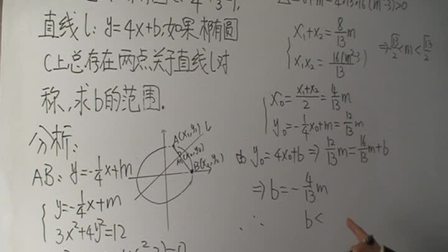 直线l: y=4x+b, 如果椭圆
C上总存在两点关于直线l对
称, 求b的范围.
分析:
AB: y=-1/4x+m
{ y=-1/4x+m
3x²+4y²=12
A(x₁,y₁)
l
M(x₀,y₀)
B(x₂,y₂)
{ x₁+x₂=8/13m
x₁x₂=16(m²-3)/13
⇒ -√13/2<m<√13/2
{ x₀=(x₁+x₂)/2=4/13m
y₀=-1/4x₀+m=12/13m
由 y₀=4x₀+b ⇒ 12/13m=16/13m+b
⇒ b=-4/13m
∴ b<